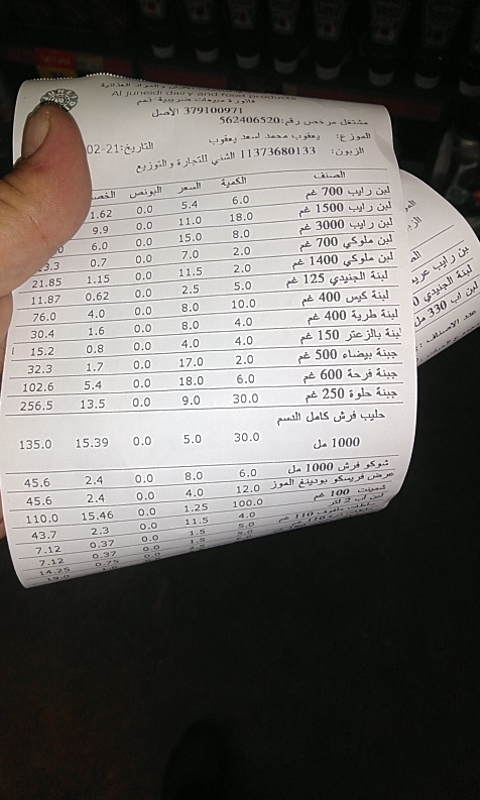 Al juneidi dairy and food products
فاتورة مبيعات ضريبية-لعم
379100971 الأصل
مشتغل مرخص رقم:562406520
الموزع: يعقوب محمد اسعد يعقوب التاريخ:21-02
الزبون: 11373680133 الشني للتجارة والتوزيع
الصنف الكمية السعر البونص الخصم
لبن رايب 700 غم 6.0 5.4 0.0 1.62
لبن رايب 1500 غم 18.0 11.0 0.0 9.9
لبن رايب 3000 غم 8.0 15.0 0.0 6.0
لبن ملوكي 700 غم 2.0 7.0 0.0 0.7 13.3
لبن ملوكي 1400 غم 2.0 11.5 0.0 1.15 21.85
لبنة الجنيدي 125 غم 5.0 2.5 0.0 0.62 11.87
لبنة كيس 400 غم 10.0 8.0 0.0 4.0 76.0
لبنة طرية 400 غم 4.0 8.0 0.0 1.6 30.4
لبنة بالزعتر 150 غم 4.0 4.0 0.0 0.8 15.2
جبنة بيضاء 500 غم 2.0 17.0 0.0 1.7 32.3
جبنة فرحة 600 غم 6.0 18.0 0.0 5.4 102.6
جبنة حلوة 250 غم 30.0 9.0 0.0 13.5 256.5
حليب فرش كامل الدسم
1000 مل 30.0 5.0 0.0 15.39 135.0
شوكو فرش 1000 مل 6.0 8.0 0.0 2.4 45.6
عرض فريسكو بودينغ الموز 12.0 4.0 0.0 2.4 45.6
شمينت 100 غم 100.0 1.25 0.0 15.46 110.0
لبن اب 2 لتر 4.0 11.5 0.0 2.3 43.7
110 غم 5.0 1.5 0.0 0.37 7.12
5.0 1.5 0.0 0.37 7.12
0.0 0.75 14.25
بن رايب
لبنة الجنيدي
لبن اب 330 مل
عدد الاصناف :